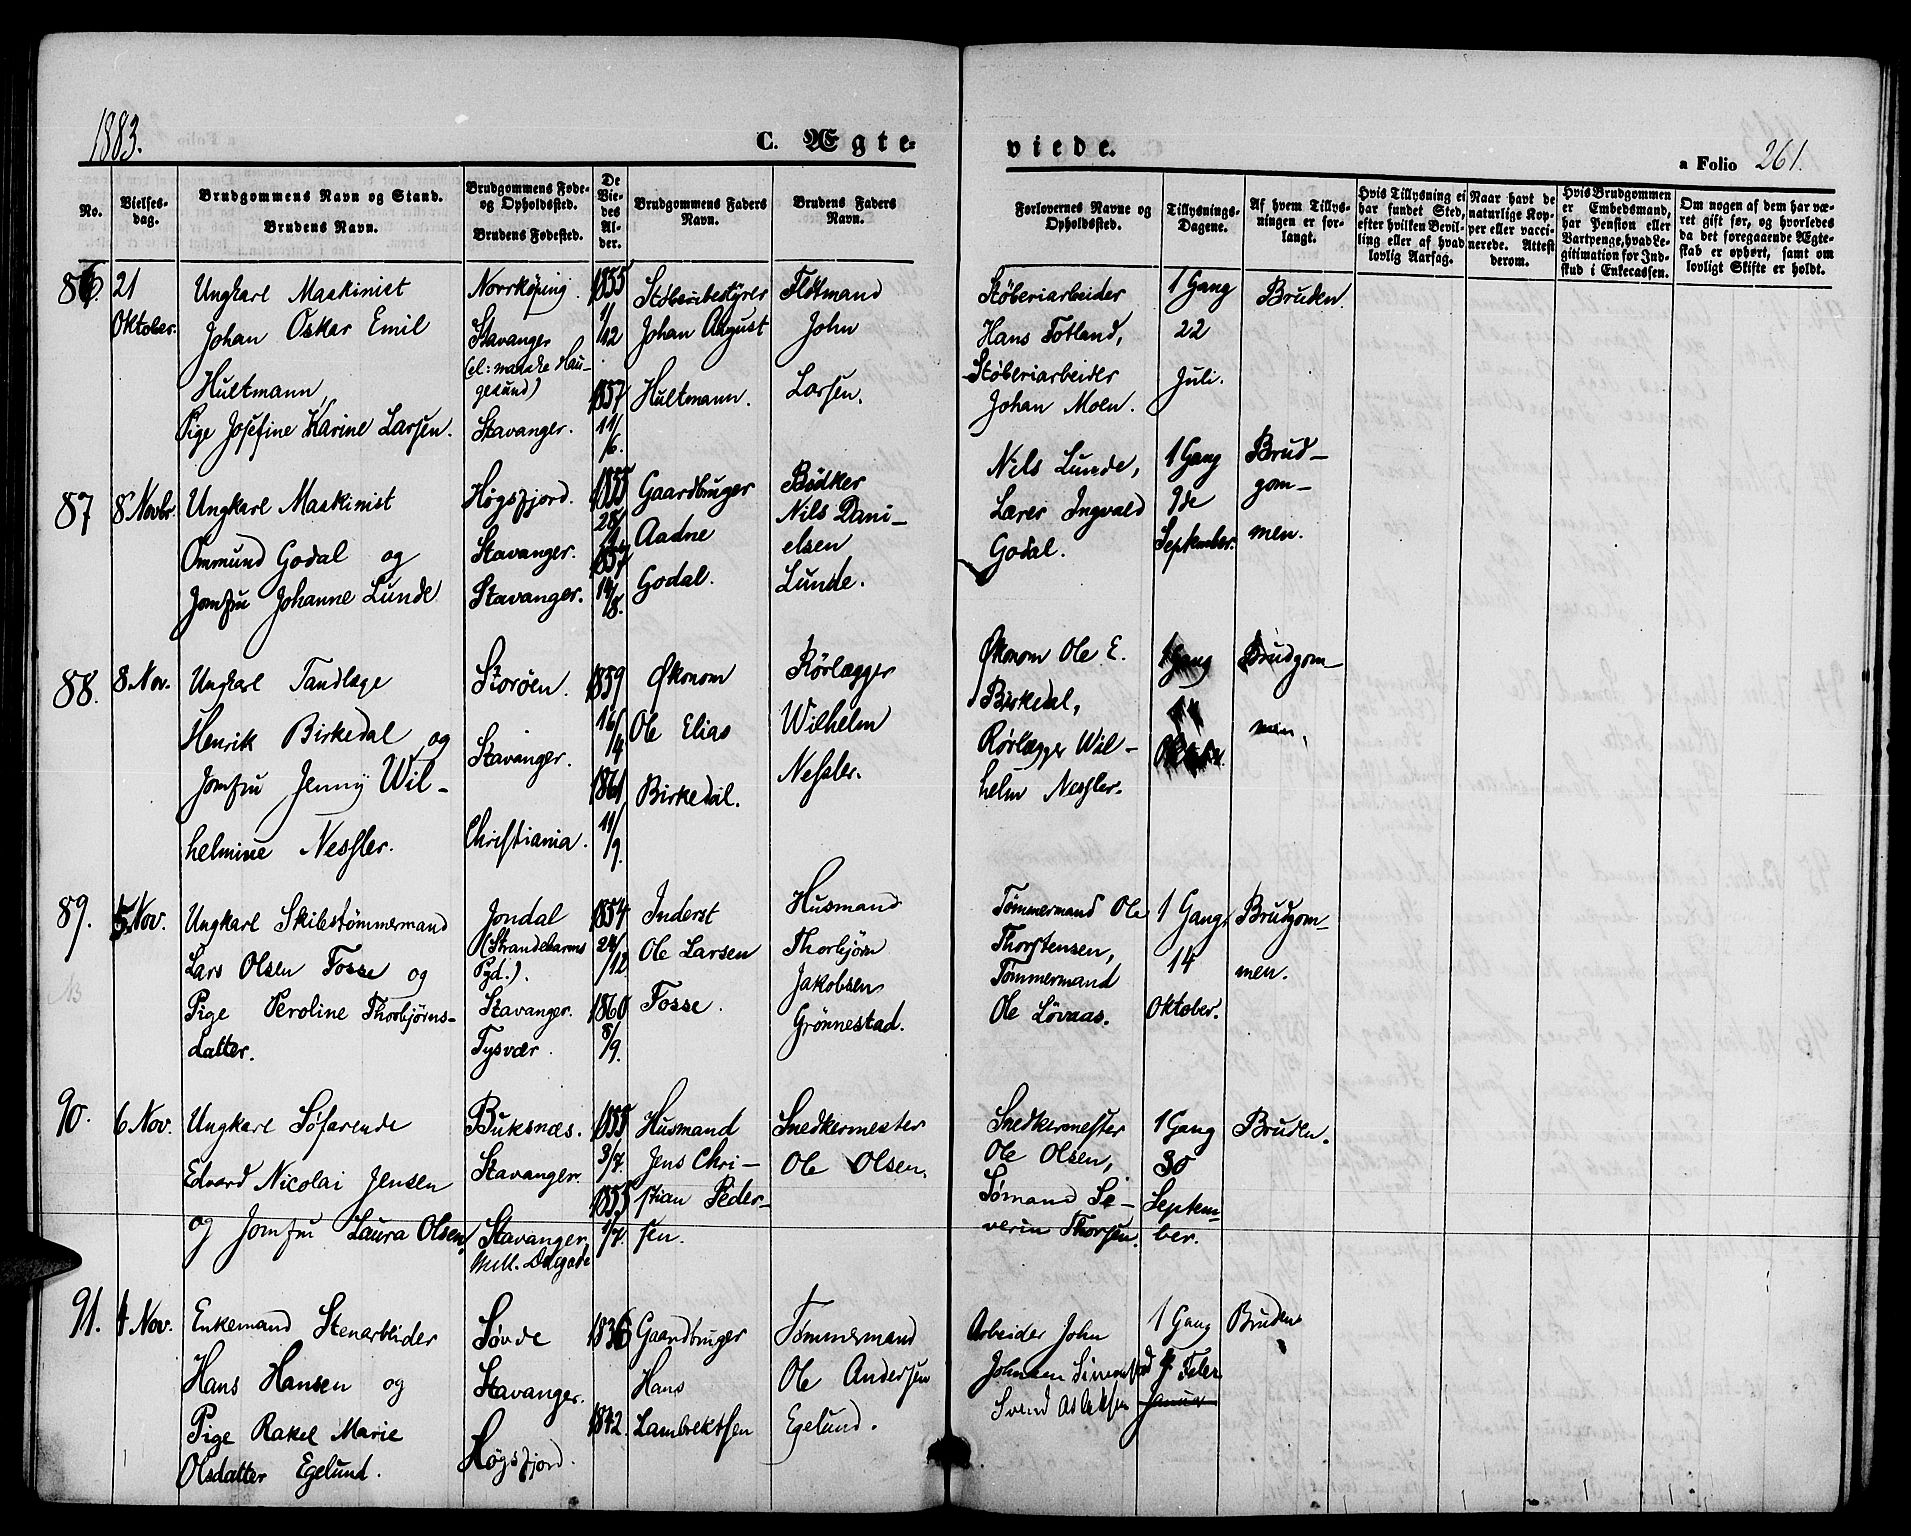 1883.
C. Ægte-
viede.
a Folio 261.
No.
Vielses-
dag.
Brudgommens Navn og Stand.
Brudens Navn.
Brudgommens Føde-
og Opholdssted.
Brudens Fødested.
De
Vie-
des
Al-
der.
Brudgommens Faders
Navn.
Brudens Faders
Navn.
Forlovernes Navne og
Opholdssted.
Tillysnings-
Dagene.
Af hvem Tillys-
ningen er for-
langt.
Hvis Tillysning ei
har fundet Sted,
efter hvilken Bevil-
ling eller af hvad
lovlig Aarsag.
Naar havt de
naturlige Kop-
per eller vacci-
nerede. Attest
derom.
Hvis Brudgommen
er Embedsmand,
har Pension eller
Vartpenge, hvad Le-
gitimation for Ind-
skud i Enkecassen.
Om nogen af dem har væ-
ret gift før, og hvorledes
da det foregaaende Ægte-
skab er ophørt, samt om
lovligt Skifte er holdt.
86
21
Oktober.
Ungkarl Maskinist
Johan Oskar Emil
Hultmann,
Pige Josefine Karine Larsen.
Norrköping.
Stavanger
(el: maaske Hau-
gesund)
Stavanger.
1855
1/12
1857
11/6.
Støberibestyrer
Johan August
Hultmann.
Flötmand
John
Larsen.
Støberiarbeider
Hans Totland,
Støberiarbeider
Johan Moen.
1 Gang
22
Juli.
Bruden.
87
8 Novbr.
Ungkarl Maskinist
Ommund Godal og
Jomfru Johanne Lunde
Høgsfjord.
Stavanger.
Stavanger.
1855
1857
14/8.
Gaardbruger
Aadne
Godal.
Bødker
Nils Dani-
elsen
Lunde.
Nils Lunde,
Lærer Ingvald
Godal.
1 Gang
9de
September.
Brud-
gom-
men.
88.
8 Nov.
Ungkarl Tandlæge
Henrik Birkedal og
Jomfru Jenny Wil-
helmine Nessler.
Storöen.
Stavanger.
Christiania.
1859
16/4
1861
11/9.
Økonom
Ole Elias
Birkedal.
Rörlægger
Wilhelm
Nessler.
Økonom Ole E.
Birkedal,
Rörlægger Wil-
helm Nessler.
1 Gang
Brudgom-
men.
89.
5 Nov.
Ungkarl Skibstømmermand
Lars Olsen Fosse og
Pige Peroline Thorbjørns-
datter.
Jondal
(Strandebarms
Pgd.).
Stavanger.
Tysvær.
1854
24/12
1860
8/9.
Inderst
Ole Larsen
Fosse.
Husmand
Thorbjørn
Jakobsen
Grønnestad.
Tømmermand Ole
Thorstensen,
Tømmermand
Ole Lövaas.
1 Gang
14
Oktober.
Brudgom-
men.
90.
6 Nov.
Ungkarl Søfarende
Edvard Nicolai Jensen
og Jomfru Laura Olsen,
Buksnæs.
Stavanger.
Stavanger.
1855
3/7.
1855
1/7.
Husmand
Jens Chri-
stian Peder-
sen.
Snedkermester
Ole Olsen.
Snedkermester
Ole Olsen,
Sømand Se-
verin Thorsen.
1 Gang
30
Septem-
ber.
Bruden.
91.
4 Nov.
Enkemand Stenarbeider
Hans Hansen og
Pige Rakel Marie
Olsdatter Egelund.
Søvde
Stavanger.
Høgsfjord.
1836
1842.
Gaardbruger
Hans
Lambrektsen
Tømmermand
Ole Andersen
Egelund.
Arbeider John
Johnsen
Svend Aslaksen
1 Gang
Januar
Bruden